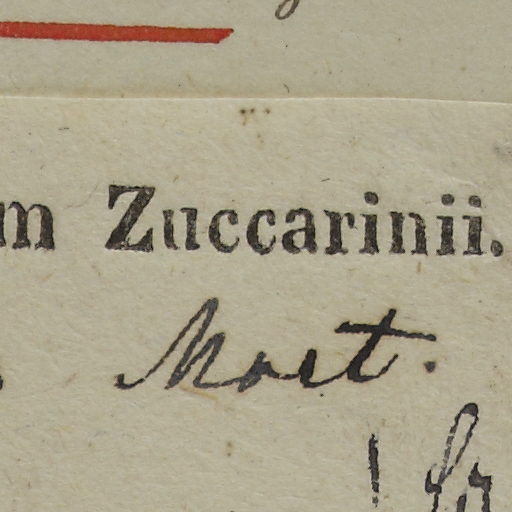 m Zuccarinii.
Mart.
!